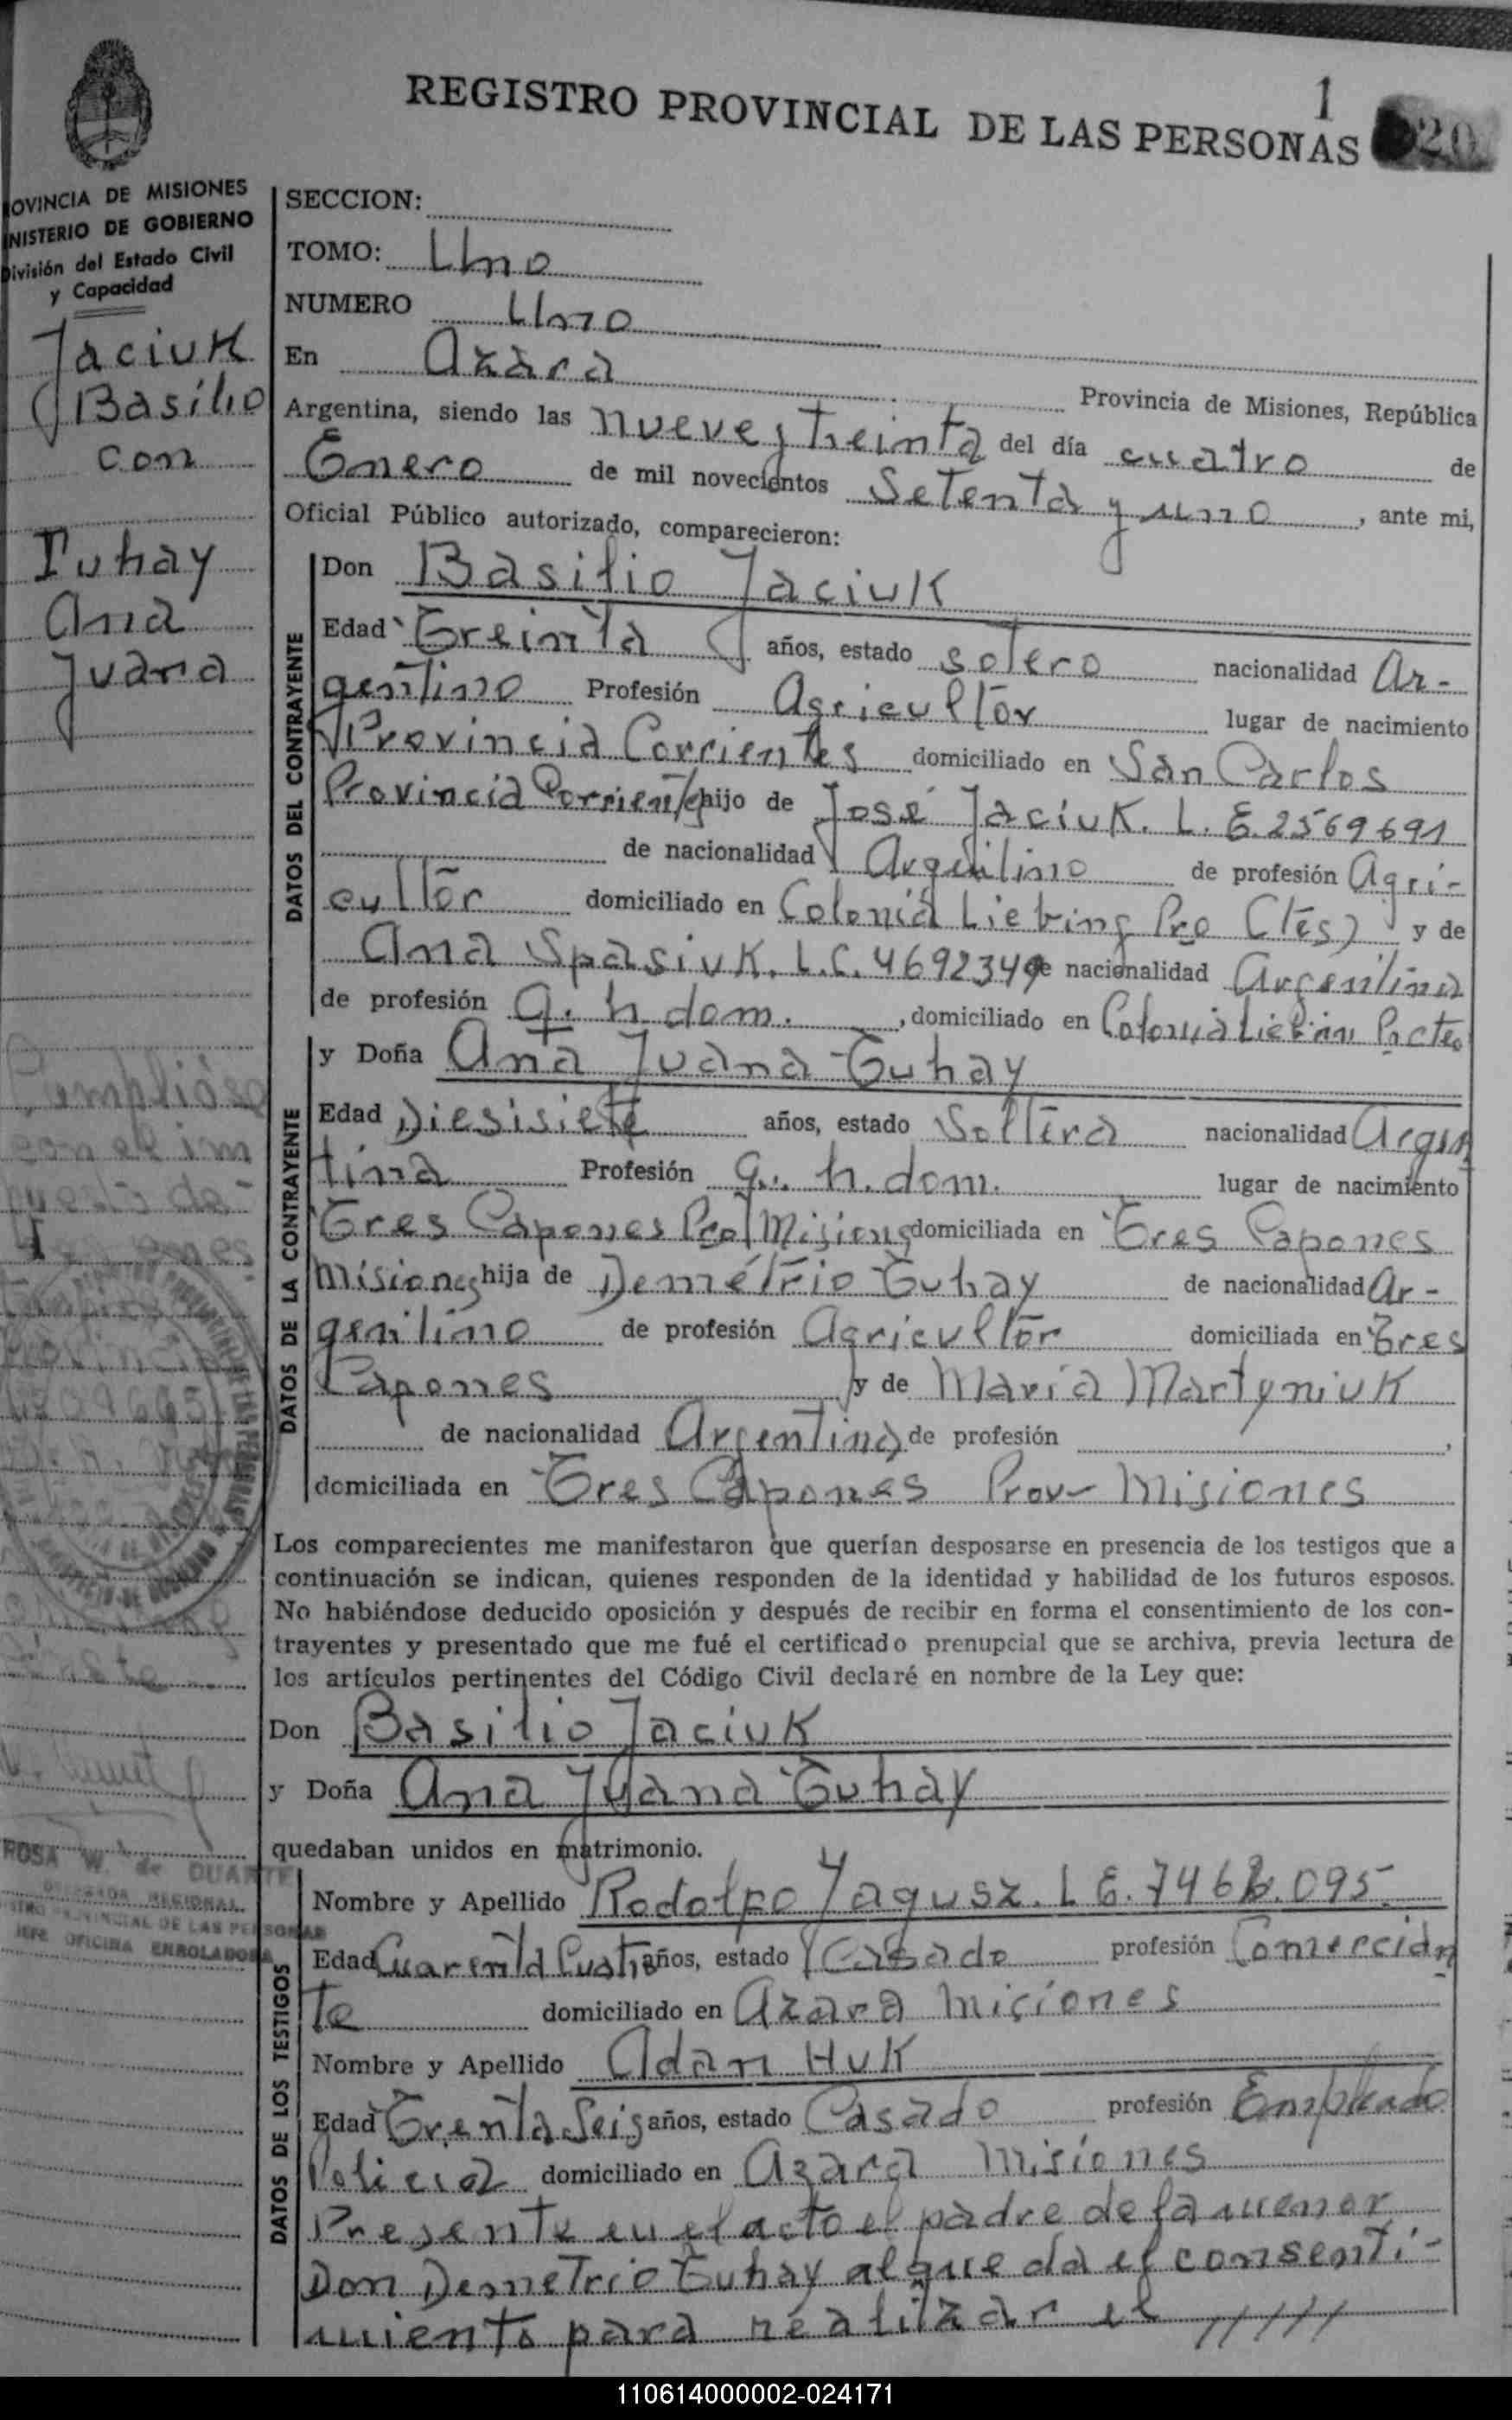 REGISTRO PROVINCIAL DE LAS PERSONAS
1
20
OVINCIA DE MISIONES
NISTERIO DE GOBIERNO
División del Estado Civil
y Capacidad
Jaciuk
Basilio
con
Tuhay
Ana
Juana
SECCION:
TOMO: Uno
NUMERO Uno
En Azara Provincia de Misiones, República
Argentina, siendo las nueve y treinta del día cuatro de
Enero de mil novecientos Setenta y uno, ante mi,
Oficial Público autorizado, comparecieron:
DATOS DEL CONTRAYENTE
Don Basilio Jaciuk
Edad Treinta años, estado soltero nacionalidad Ar-
gentino Profesión Agricultor lugar de nacimiento
Provincia Corrientes domiciliado en San Carlos
Provincia Corrientes hijo de José Jaciuk. L. E. 2569691
de nacionalidad Argentino de profesión Agri-
cultor domiciliado en Colonia Liebing Pro Ctes) y de
Ana Spasiuk. L.C. 4692349 de nacionalidad Argentina
de profesión q. h. dom., domiciliado en Colonia Liebin
DATOS DE LA CONTRAYENTE
y Doña Ana Juana Tuhay
Edad Diesisiete años, estado Soltera nacionalidad Argen
tina Profesión q. h. dom. lugar de nacimiento
Tres Capones Pro Misiones domiciliada en Tres Capones
Misiones hija de Demétrio Tuhay de nacionalidad Ar-
gentino de profesión Agricultor domiciliada en Tres
Capones y de Maria Martyniuk
de nacionalidad Argentina de profesión ,
domiciliada en Tres Capones Prov- Misiones
Los comparecientes me manifestaron que querían desposarse en presencia de los testigos que a
continuación se indican, quienes responden de la identidad y habilidad de los futuros esposos.
No habiéndose deducido oposición y después de recibir en forma el consentimiento de los con-
trayentes y presentado que me fué el certificado prenupcial que se archiva, previa lectura de
los artículos pertinentes del Código Civil declaré en nombre de la Ley que:
Don Basilio Jaciuk
y Doña Ana Juana Tuhay
quedaban unidos en matrimonio.
ROSA W. de DUARTE
DELEGADA REGIONAL
JEFE OFICINA ENROLADORA
DATOS DE LOS TESTIGOS
Nombre y Apellido Rodolfo Yagusz. L E. 7468.095
Edad Cuarenta Cuatro años, estado Casado profesión Comercian
te domiciliado en Azara Miciones
Nombre y Apellido Adan Huk
Edad Trenta Seis años, estado Casado profesión Empleado
Policial domiciliado en Azara Misiones
Presente en el acto el padre de la menor
Don Demetrio Tuhay al que da el consenti-
miento para realizar el /////
110614000002-024171